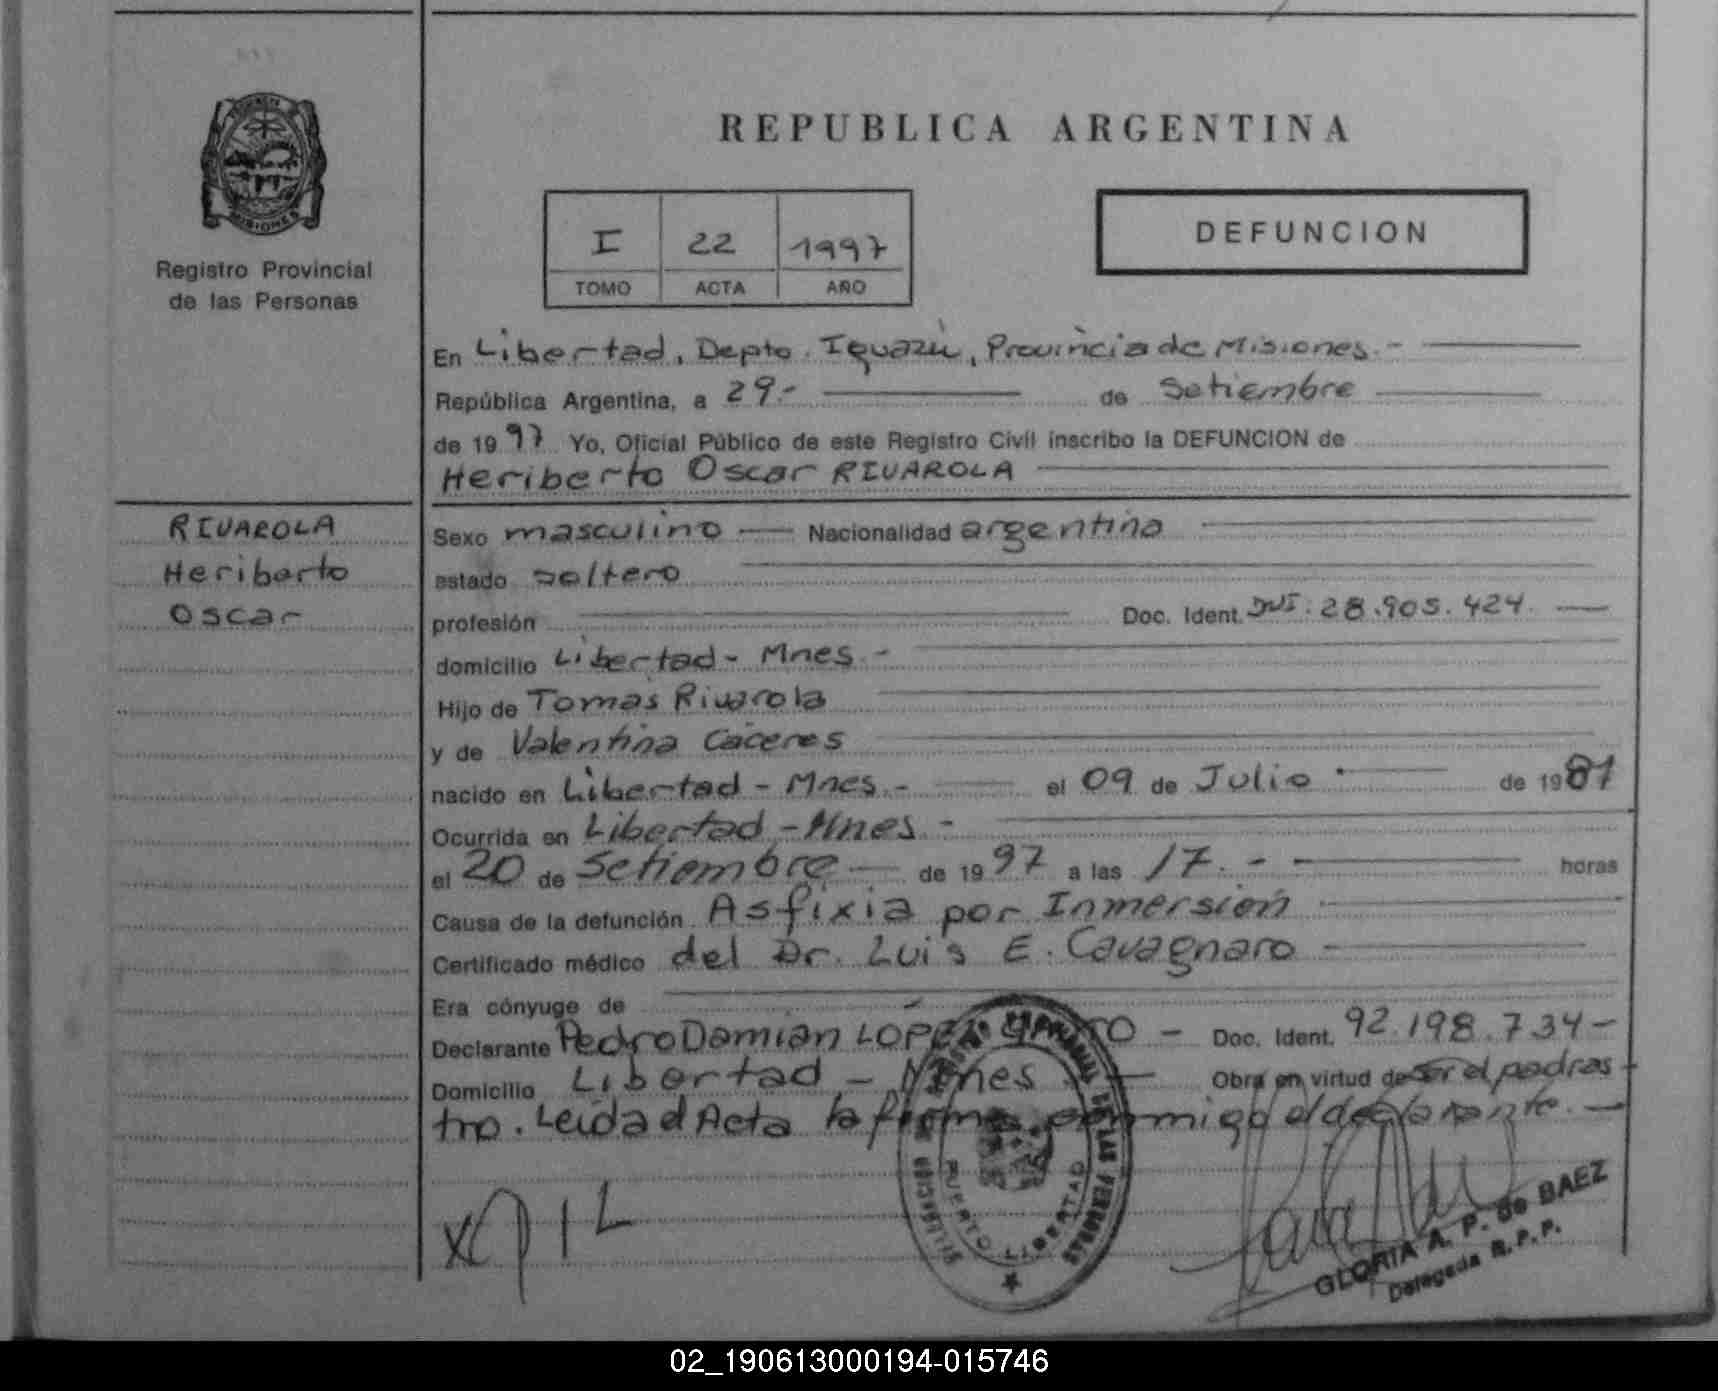 REPUBLICA ARGENTINA
PROVINCIA
MISIONES
Registro Provincial
de las Personas
I 22 1997
TOMO ACTA AÑO
DEFUNCION
En Libertad, Depto. Iguazú, Provincia de Misiones.-
República Argentina, a 29.- de Setiembre
de 1997 Yo, Oficial Público de este Registro Civil inscribo la DEFUNCION de
Heriberto Oscar RIVAROLA
RIVAROLA
Heriberto
Oscar
Sexo masculino Nacionalidad argentina
estado soltero
profesión Doc. Ident. DNI: 28.905.424.
domicilio Libertad - Mnes.-
Hijo de Tomás Rivarola
y de Valentina Caceres
nacido en Libertad - Mnes.- el 09 de Julio de 1981
Ocurrida en Libertad - Mnes -
el 20 de Setiembre de 1997 a las 17.- horas
Causa de la defunción Asfixia por Inmersión
Certificado médico del Dr. Luis E. Cavagnaro
Era cónyuge de
Declarante Pedro Damián LÓPEZ - Doc. Ident. 92.198.734-
Domicilio Libertad - Mnes Obra en virtud de ser el padras-
tro. Leída el Acta la firma conmigo el declarante.-
PUERTO LIBERTAD
GLORIA A. P. de BAEZ
Delegada R.P.P.
02_190613000194-015746